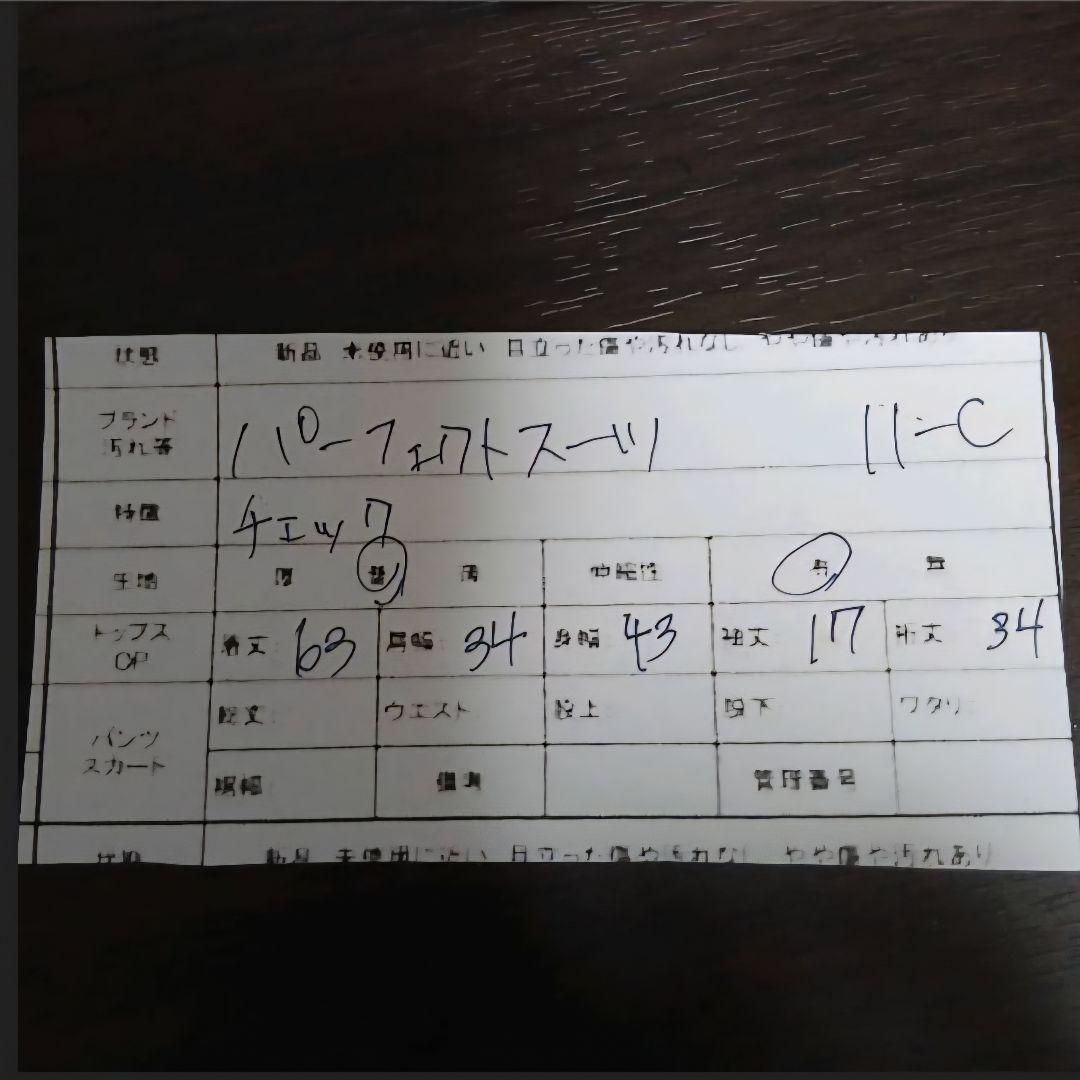 状態 新品 未使用に近い 目立った傷や汚れなし やや傷や汚れあり
ブランド パーフェクトスーツ
汚れ等
特徴 チェック
生地 厚 普 薄 伸縮性 有 無
トップス 着丈 63 肩幅 34 身幅 43 袖丈 17 裄丈 34
OP
総丈 ウエスト 股上 股下 ワタリ
パンツ
スカート
裾幅 備考 管理番号
状態 新品 未使用に近い 目立った傷や汚れなし やや傷や汚れあり